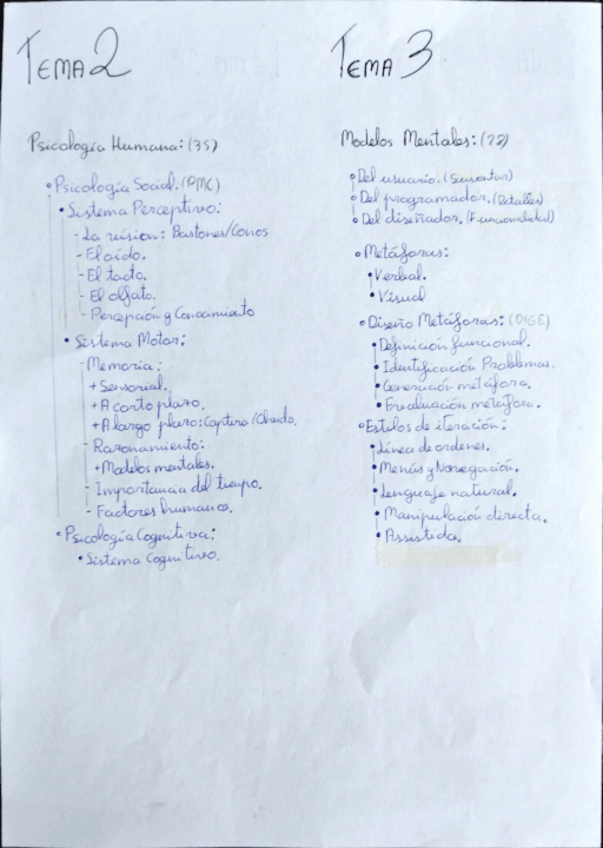 TEMA 2
Psicología Humana: (35)
Psicología Social. (PMC)
Sistema Perceptivo:
- La visión: Bastones/Conos
- El oído.
- El tacto.
- El olfato.
- Percepción y Conocimiento
Sistema Motor:
- Memoria:
+ Sensorial.
+ A corto plazo.
+ A largo plazo: Captura/Olvido.
- Razonamiento:
+ Modelos mentales.
- Importancia del tiempo.
- Factores humanos.
Psicología Cognitiva:
Sistema Cognitivo.
TEMA 3
Modelos Mentales:
Del usuario.
Del programador. (Detalles)
Del diseñador. (Funcionalidad)
Metáforas:
Verbal.
Visual
Diseño Metáforas: (DIGE)
Definición funcional.
Identificación Problemas.
Generación metáfora.
Evaluación metáfora.
Estilos de iteración:
Línea de ordenes.
Menús y Navegación.
Lenguaje natural.
Manipulación directa.
Assistida.